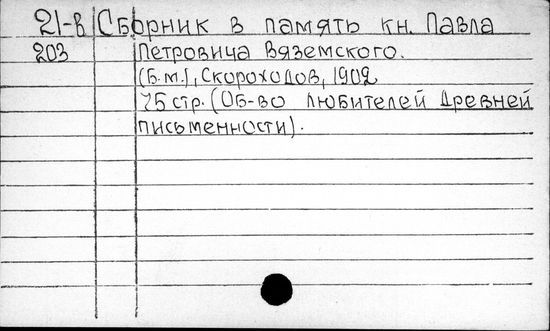 21-в Сборник в память кн. Павла
203 Петровича Вяземского.
(Б.м.), Скороходов, 1902
75 стр. (Об-во любителей древней
письменности).